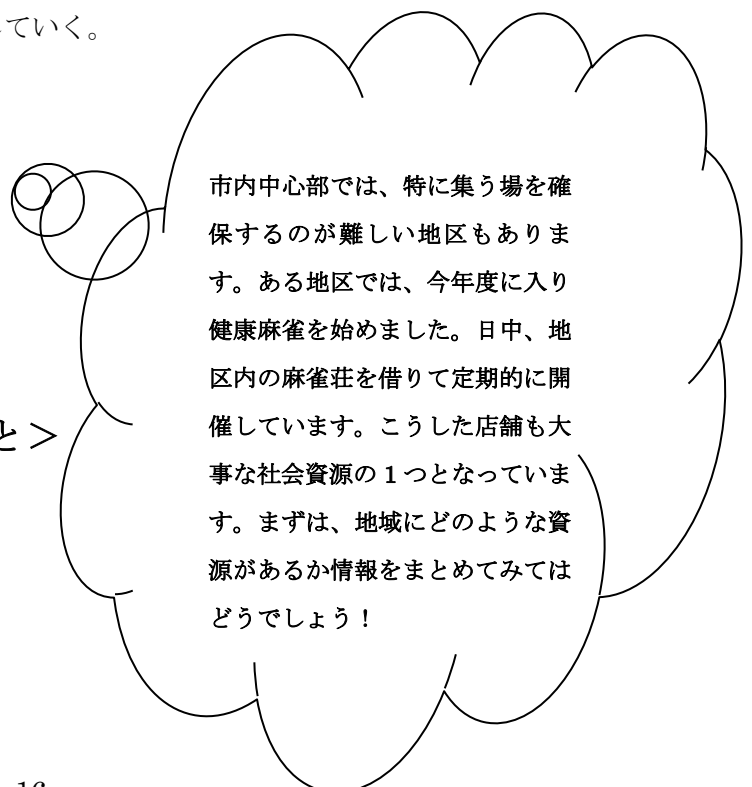 ていく。
市内中心部では、特に集う場を確
保するのが難しい地区もありま
す。ある地区では、今年度に入り
健康麻雀を始めました。日中、地
区内の麻雀荘を借りて定期的に開
催しています。こうした店舗も大
事な社会資源の１つとなっていま
す。まずは、地域にどのような資
源があるか情報をまとめてみては
どうでしょう！
と＞